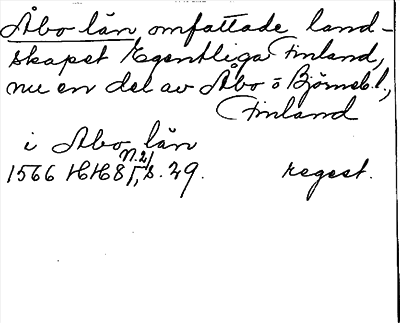 Åbo län omfattade land-
skapet Egentliga Finland,
nu en del av Åbo o Björneb. l.,
Finland
i Åbo län
1566 HH 8 N.21 I, s. 29. regest.